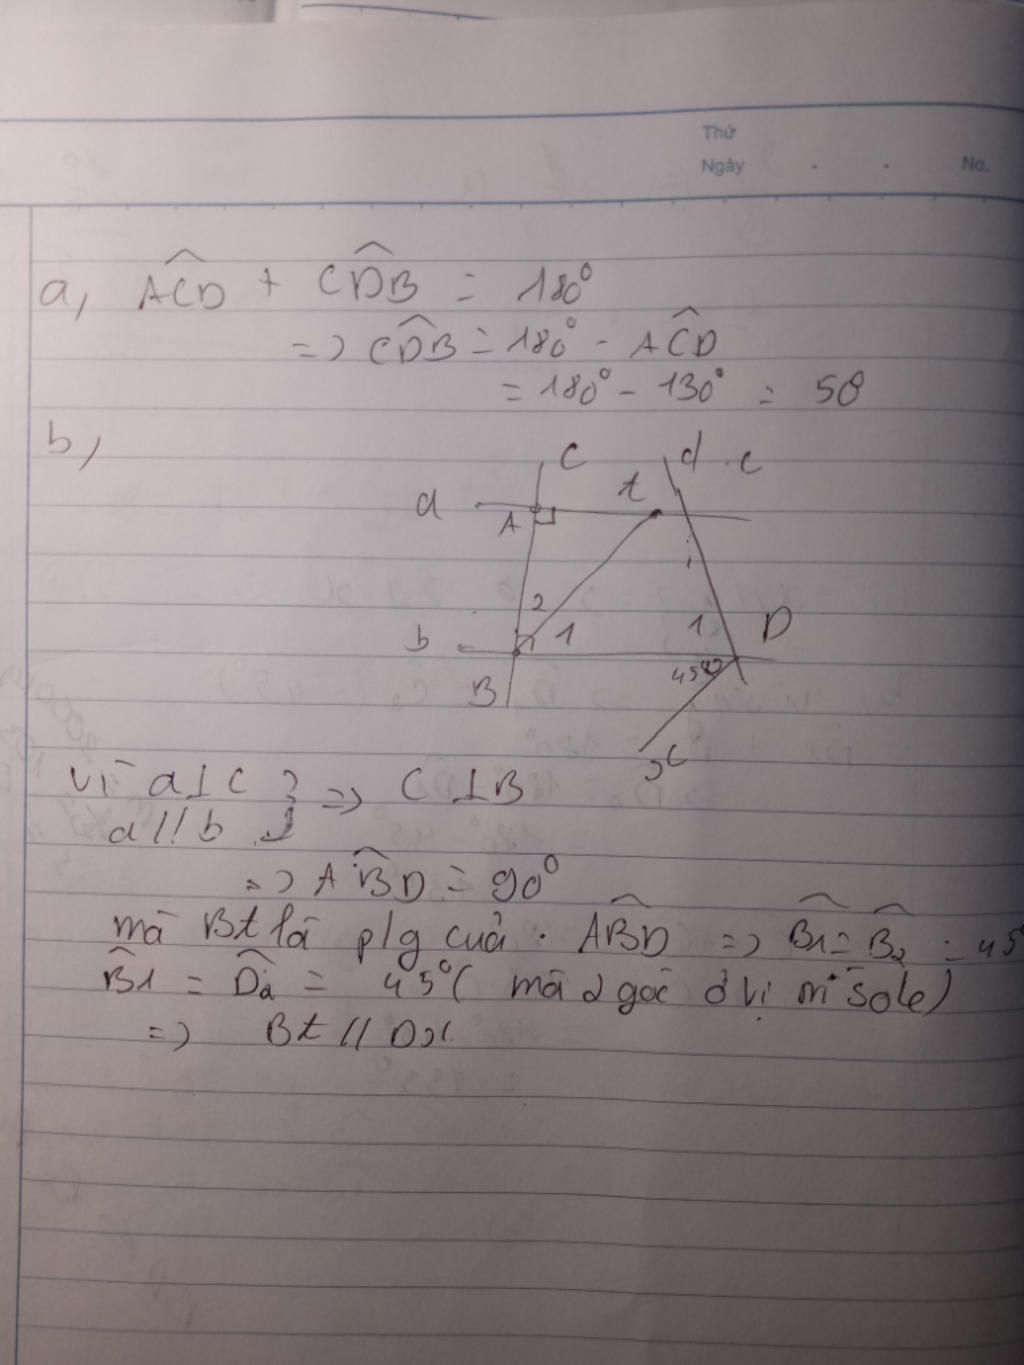 Thứ
Ngày . . No.
a, ACD + CDB = 180°
=> CDB = 180° - ACD
= 180° - 130° = 50
b,
C d . c
t
a A
2
b 1 1 D
45°
B
x
Vì a⊥c } => C⊥B
a//b
=> ABD = 90°
mà Bt là p/g của . ABD => B1 = B2 = 45°
B1 = D2 = 45° ( mà 2 góc ở vị trí sole)
=> Bt // Dx.